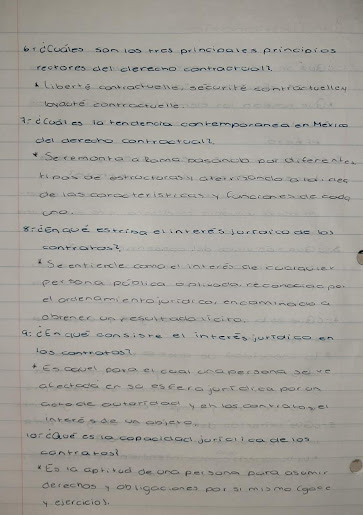 6: ¿Cuáles son los tres principales principios
rectores del derecho contractual?
* Liberté contractuelle, sécurité contractuelle y
loyauté contractuelle.
7: ¿Cuál es la tendencia contemporanea en México
del derecho contractual?
* Se remonta a Roma pasando por diferentes
tipos de estructuras y aterrizando a la idea
de las características y funciones de cada
uno.
8: ¿En qué estriba el interés jurídico de los
contratos?
* Se entiende como el interés de cualquier
persona pública o privada, reconocido por
el ordenamiento jurídico, encaminado a
obtener un resultado lícito.
9: ¿En qué consiste el interés jurídico en
los contratos?
* Es aquel para el cual una persona se ve
afectada en su esfera jurídica por un
acto de autoridad y en los contratos el
interés de un objeto.
10: ¿Qué es la capacidad jurídica de los
contratos?
* Es la aptitud de una persona para asumir
derechos y obligaciones por sí mismo (goce
y ejercicio).